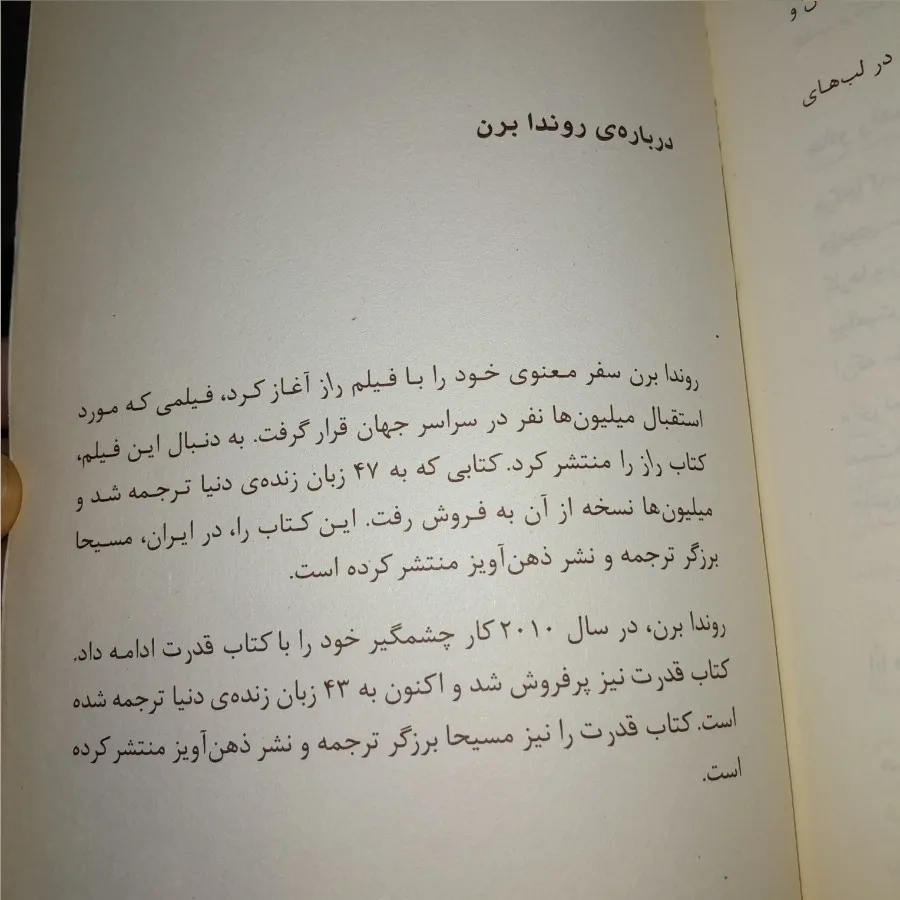 درباره‌ی روندا برن
روندا برن سفر معنوی خود را با فیلم راز آغاز کرد، فیلمی که مورد
استقبال میلیون‌ها نفر در سراسر جهان قرار گرفت. به دنبال این فیلم،
کتاب راز را منتشر کرد. کتابی که به ۴۷ زبان زنده‌ی دنیا ترجمه شد و
میلیون‌ها نسخه از آن به فروش رفت. این کتاب را، در ایران، مسیحا
برزگر ترجمه و نشر ذهن‌آویز منتشر کرده است.
روندا برن، در سال ۲۰۱۰ کار چشمگیر خود را با کتاب قدرت ادامه داد.
کتاب قدرت نیز پرفروش شد و اکنون به ۴۳ زبان زنده‌ی دنیا ترجمه شده
است. کتاب قدرت را نیز مسیحا برزگر ترجمه و نشر ذهن‌آویز منتشر کرده
است.
در لب‌های